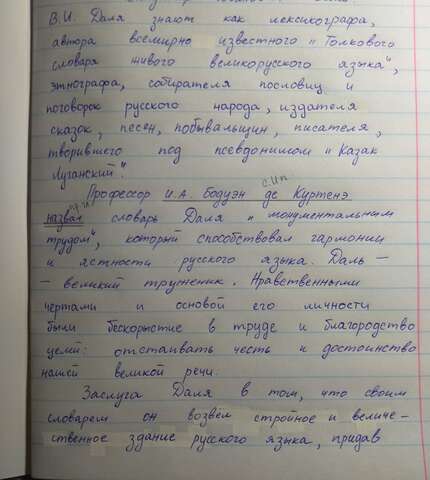 В.И. Даля знают как лексикографа,
автора всемирно известного "Толкового
словаря живого великорусского языка",
этнографа, собирателя пословиц и
поговорок русского народа, издателя
сказок, песен, побывальщин, писателя,
творившего под псевдонимом "Казак
Луганский".
с.ип
Профессор И.А. Бодуэн де Куртенэ
назвал словарь Даля "монументальным
трудом", который способствовал гармонии
и ястности русского языка. Даль –
– великий труженик. Нравственными
чертами и основой его личности
были бескорыстие в труде и благородство
целей: отстаивать честь и достоинство
нашей великой речи.
Заслуга Даля в том, что своим
словарем он возвёл стройное и величе-
ственное здание русского языка, придав